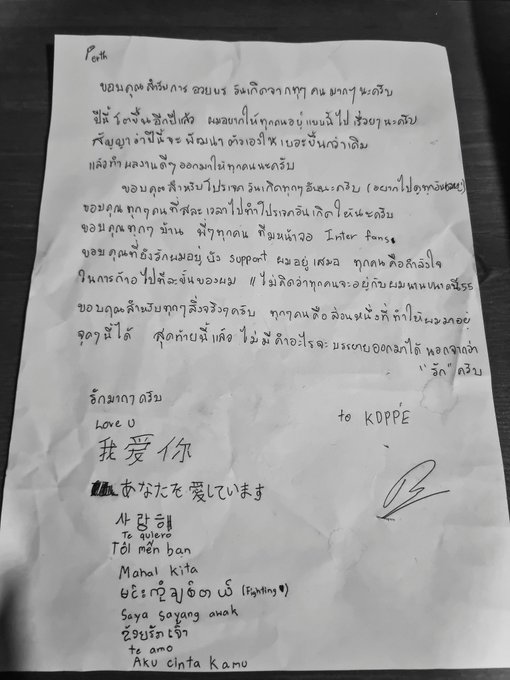 Perth
ขอบคุณสำหรับการ อวยพร วันเกิดจากทุกๆ คน มากๆ นะครับ
ปีนี้ โตขึ้นอีกปีแล้ว ผมอยากให้ทุกคนอยู่แบบนี้ไป เรื่อยๆ นะครับ
สัญญาว่าปีนี้จะ พัฒนา ตัวเองให้ เยอะขึ้นกว่าเดิม
แล้วทำผลงานดีๆ ออกมาให้ทุกคนนะครับ
ขอบคุณสำหรับโปรเจควันเกิดทุกๆอันนะครับ (อยากไปดูทุกอันเลย)
ขอบคุณทุกๆคนที่สละเวลาไปทำโปรเจควันเกิดให้นะครับ
ขอบคุณทุกๆ บ้าน พี่ๆทุกคน ทีมหน้าจอ Inter fans.
ขอบคุณที่ยังรักผมอยู่ ยัง support ผมอยู่เสมอ ทุกคนคือกำลังใจ
ในการก้าวไปทีละขั้นของผม ไม่คิดว่าทุกคนจะอยู่กับผมนานขนาดนี้55
ขอบคุณสำหรับทุกๆสิ่งจริงๆครับ ทุกๆคนคือส่วนหนึ่งที่ทำให้ผมมาอยู่
จุดๆนี้ได้ สุดท้ายนี้แล้ว ไม่มีคำอะไรจะบรรยายออกมาได้ นอกจากว่า
"รัก" ครับ
รักมากๆครับ
Love U
to KOPPE
我爱你
あなたを愛しています
사랑해
Te quiero
Tôi mến bạn
Mahal kita
မင်းကိုချစ်တယ် (Fighting)
Saya sayang awak
ข้อยรักเจ้า
te amo
Aku cinta kamu